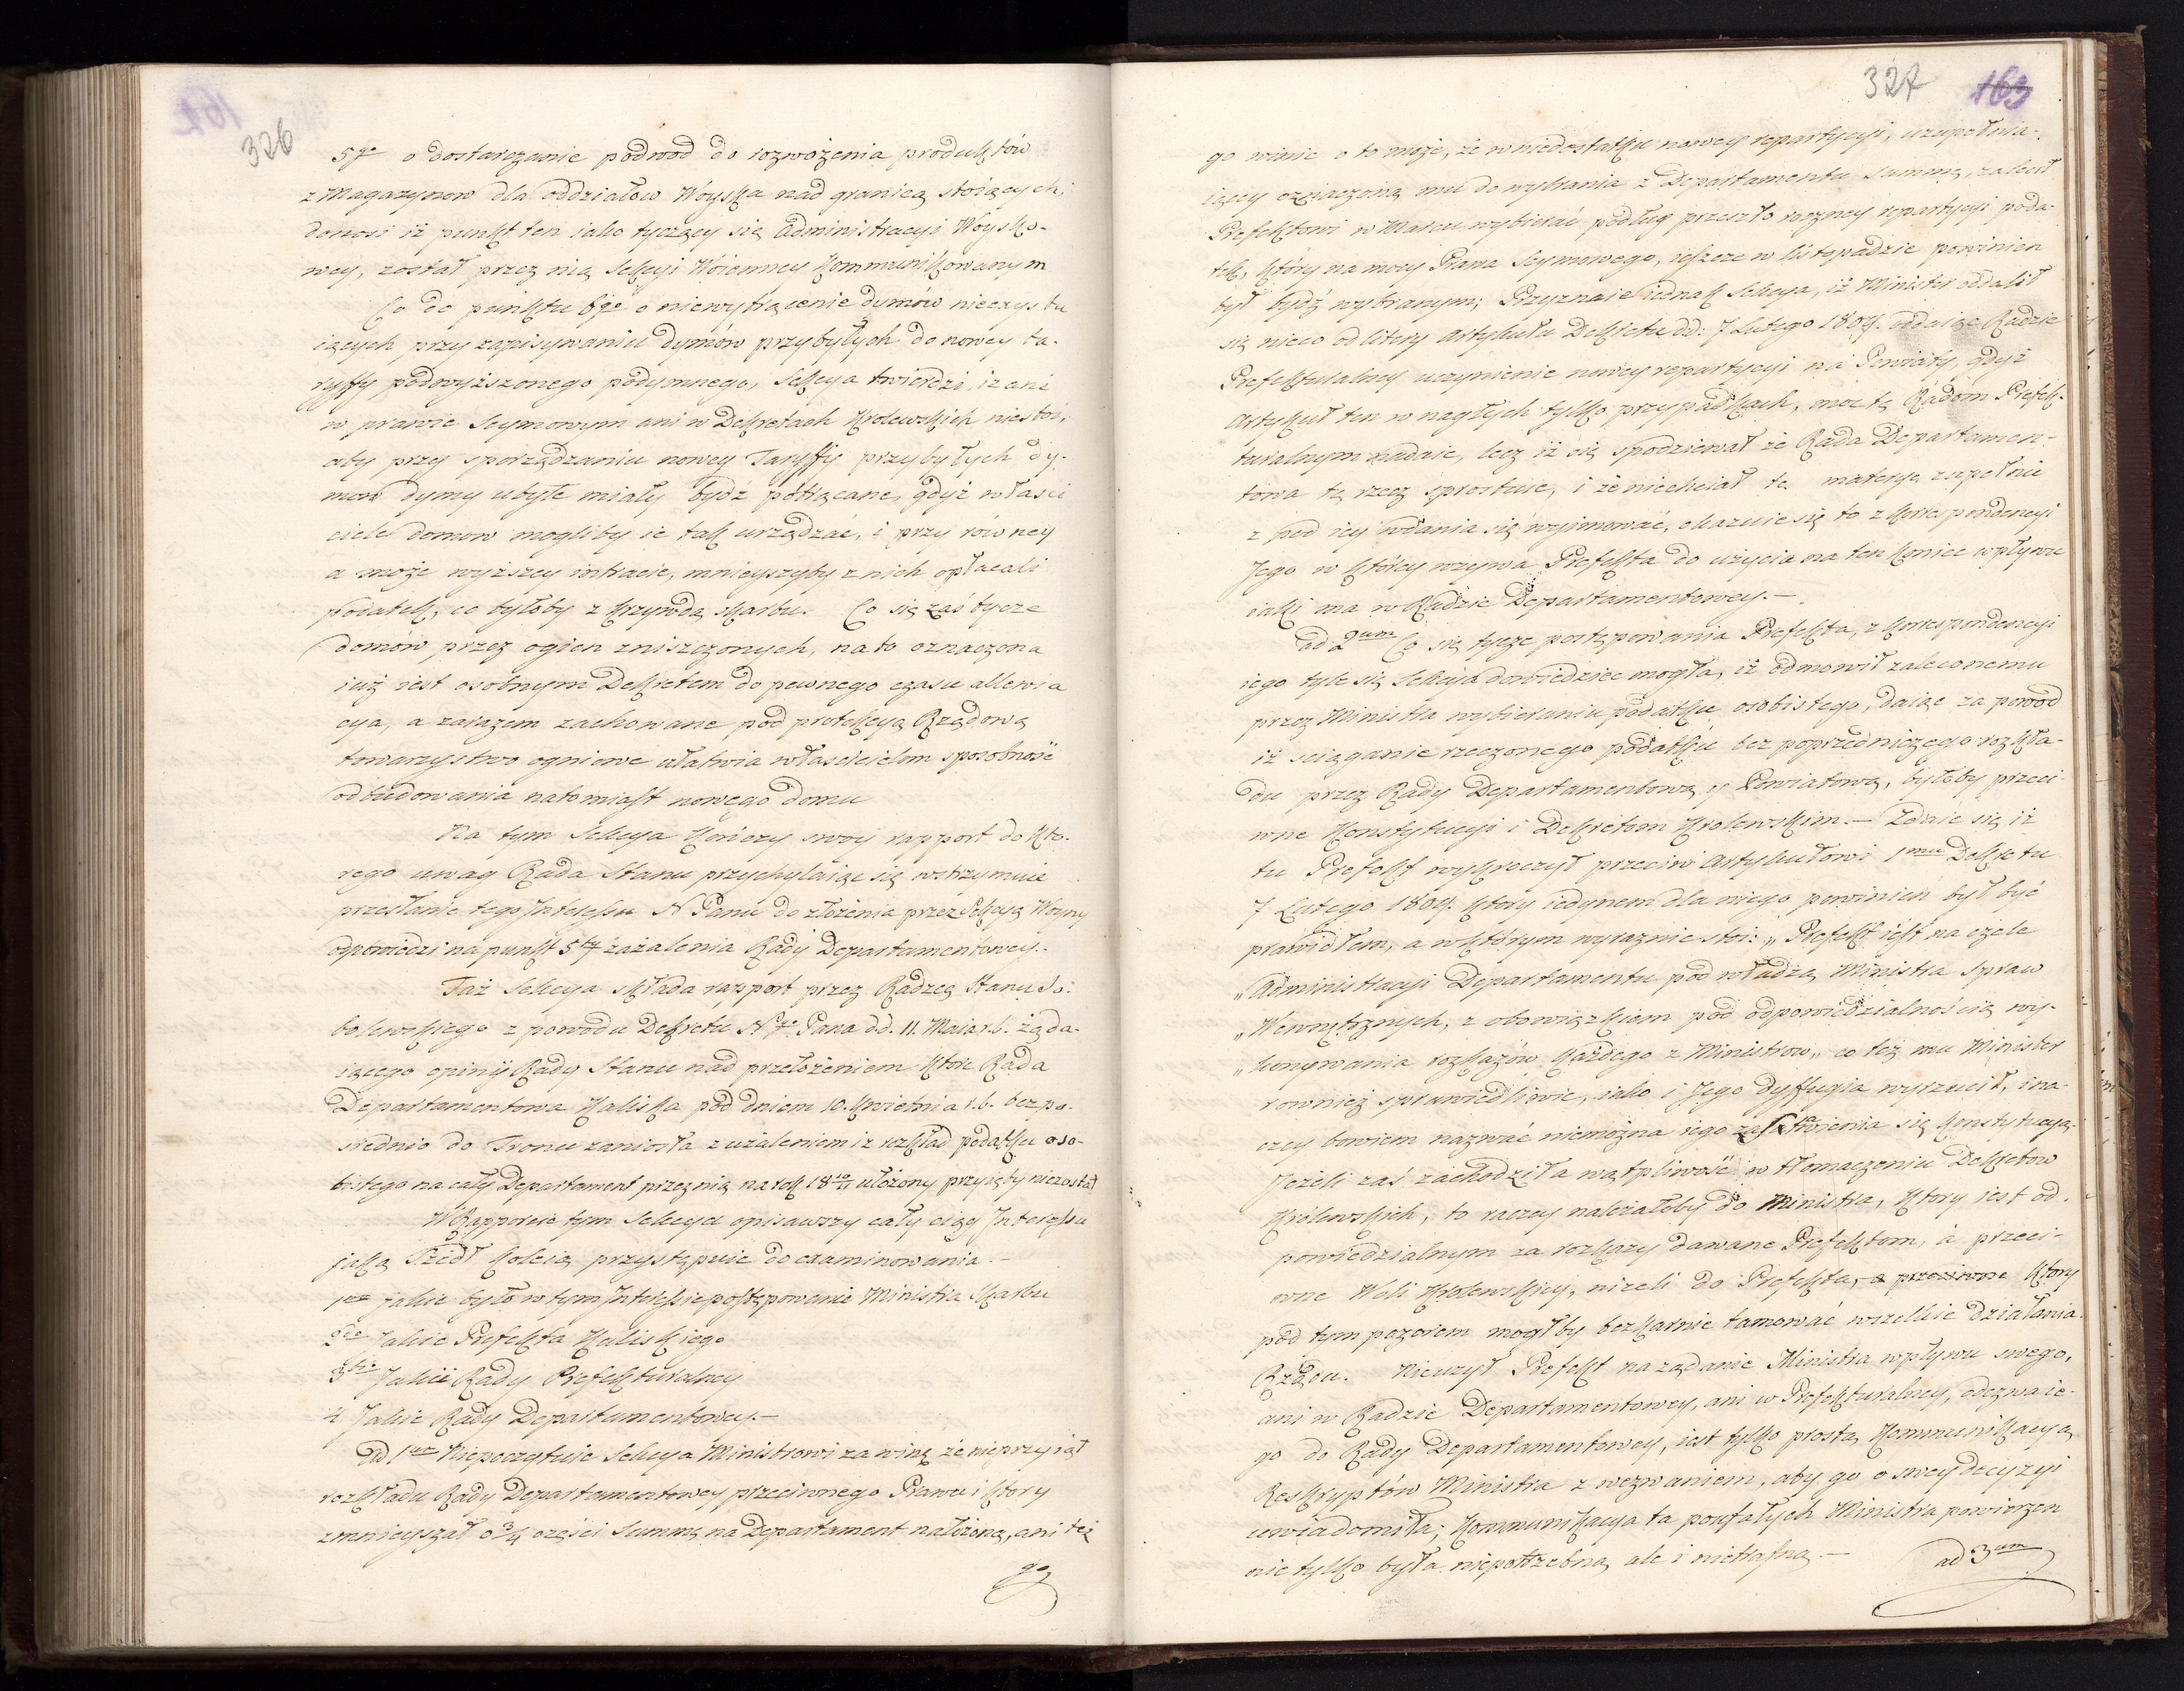 326
5to o dostarczanie podwod do rozwożenia produktów
z Magazynow dla oddziałow Woyska nad granicą stoiących;
donosi iż punkt ten iako tyczący się Administracyi Woysko-
wey, został przez nią Sekcyi Woienney kommunikowanym
Co do punktu 6go o niewytrącenie dymów nieexystu
iących przy zapisywaniu dymów przybyłych do nowey ta-
ryffy podwyższonego podymnego, Sekcya twierdzi, iż ani
w prawie Seymowym ani w Dekretach Krolewskich niestoi,
aby przy sporządzaniu nowey Taryffy przybyłych dy-
mow dymy ubyłe miały bydź potrącane, gdyż właści
ciele domow mogliby ie tak urządzać, i przy równey
a może wyższey intracie, mnieyszyby z nich opłacali
podatek, co byłoby z krzywdą skarbu. Co się zaś tycze
domów przez ogien zniszczonych, na to oznaczona
iuż iest osobnym Dekretem do pewnego czasu allewia
cya, a zarazem zachowane pod protekcyą Rządową
towarzystwo ogniowe ułatwia właścicielom sposobność
odbudowania natomiast nowego domu
Na tym Sekcya kończy swoy rapport do któ-
rego uwag Rada Stanu przychylaiąc się wstrzymuie
przesłanie tego Interessu N Panu do złożenia przez Sekcyą Woyny
odpowiedzi na punkt 5ty zażalenia Rady Departamentowey.-
Taż Sekcya składa rapport przez Radzcę Stanu So-
bolewskiego z powodu Dekretu Ngo Pana dd. 11. Maia r.b. żąda-
iącego opinij Rady Stanu nad przełożeniem które Rada
Departamentowa Kaliska pod dniem 10. Kwietnia r.b. bezpo-
srednio do Tronu zaniosła z użaleniem iż rozkład podatku oso-
bistego na cały Departament przez nią na rok 18 10/11 ułożony przyięty niezostał
W Rapporcie tym Sekcya opisawszy cały ciąg Interessu
jaką szedł koleią przystępuie do examinowania.-
1mo jakie było w tym Interessie postępowanie Ministra Skarbu
2do Jakie Prefekta Kaliskiego
3tio Jakie Rady Prefekturalney
4 Jakie Rady Departamentowey.-
ad 1um Niepoczytuie Sekcya Ministrowi za winę że nieprzyiął
rozkładu Rady Departamentowey przeciwnego Prawu i który
zmnieyszał o 3/4 części Summę na Departament nałożoną, ani też
go
327 163
go winić o to może, że w niedostatku nowey repartycyi, uzupełnia-
iącey oznaczoną mu do wybrania z Departamentu Summę, zalecił
Prefektowi w Marcu wybierać podług przeszło roczney repartycyi poda-
tek, który na mocy Prawa Seymowego, ieszcze w listopadzie powinien
był bydź wybranym; Przyznaie iednak Sekcya, iż Minister oddalił
się nieco od litery Artykułu Dekretu dd: 7 Lutego 1809. oddaiąc Radzie
Prefekturalney uczynienie nowey repartycyi na Powiaty, gdyż
Artykuł ten w nagłych tylko przypadkach, moc tę Radom Prefek-
turalnym nadaie, lecz iż się spodziewał że Rada Departamen-
towa tę rzecz sprostuie, i że niechciał tę materyę zupełnie
z pod iey wdania się wyimować, okazuie się to z korrespondencyi
Jego w którey wzywa Prefekta do użycia na ten koniec wpływu
iaki ma w Radzie Departamentowey.-
ad 2um Co się tycze postępowania Prefekta, z korrespondencyi
iego tyle się Sekcya dowiedziec mogła, iż odmowił zaleconemu
przez Ministra wybieraniu podatku osobistego, daiąc za powód
iż sciąganie rzeczonego podatku bez poprzedniczego rozkła-
du przez Rady Departamentową y Powiatową, byłoby przeci-
wne Konstytucyi i Dekretom Krolewskim.- Zdaie się iż
tu Prefekt wykroczył przeciw Artykułowi 1mu Dekretu
7 Lutego 1809. który iedynem dla niego powinien był być
prawidłem, a w którym wyraznie stoi: „ Prefekt iest na czele
„Administracyi Departamentu pod władzą Ministra Spraw
„Wewnętrznych, z obowiązkiem pod odpowiedzialnością wy-
„konywania rozkazów każdego z Ministrow„ co też mu Minister
rownież sprawiedliwie, iako i Jego dyffugia wyrzucił, ina-
czey bowiem nazwać niemożna iego zasłonienia się konstytucyą.
Jeżeli zaś zachodziła wątpliwość w tłomaczeniu Dekretow
Królewskich, to raczey należałoby do Ministra, ktory iest od-
powiedzialnym za rozkazy dawane Prefektom, a przeci-
wne Woli Krolewskiey, niżeli do Prefekta, a przeciwne ktory
pod tym pozorem mogłby bezkarnie tamować wszelkie działania
Rządu. Nieużył Prefekt na żądanie Ministra wpływu swego,
ani w Radzie Departamentowey, ani w Prefekturalney, odezwa ie-
go do Rady Departamentowey, iest tylko prostą kommunikacyą
Reskryptów Ministra z wezwaniem, aby go o swey decyzyi
uwiadomiła; kommunikacya ta poufałych Ministra powierzen
nie tylko była niepotrzebną ale i nietrafną.-
ad 3um